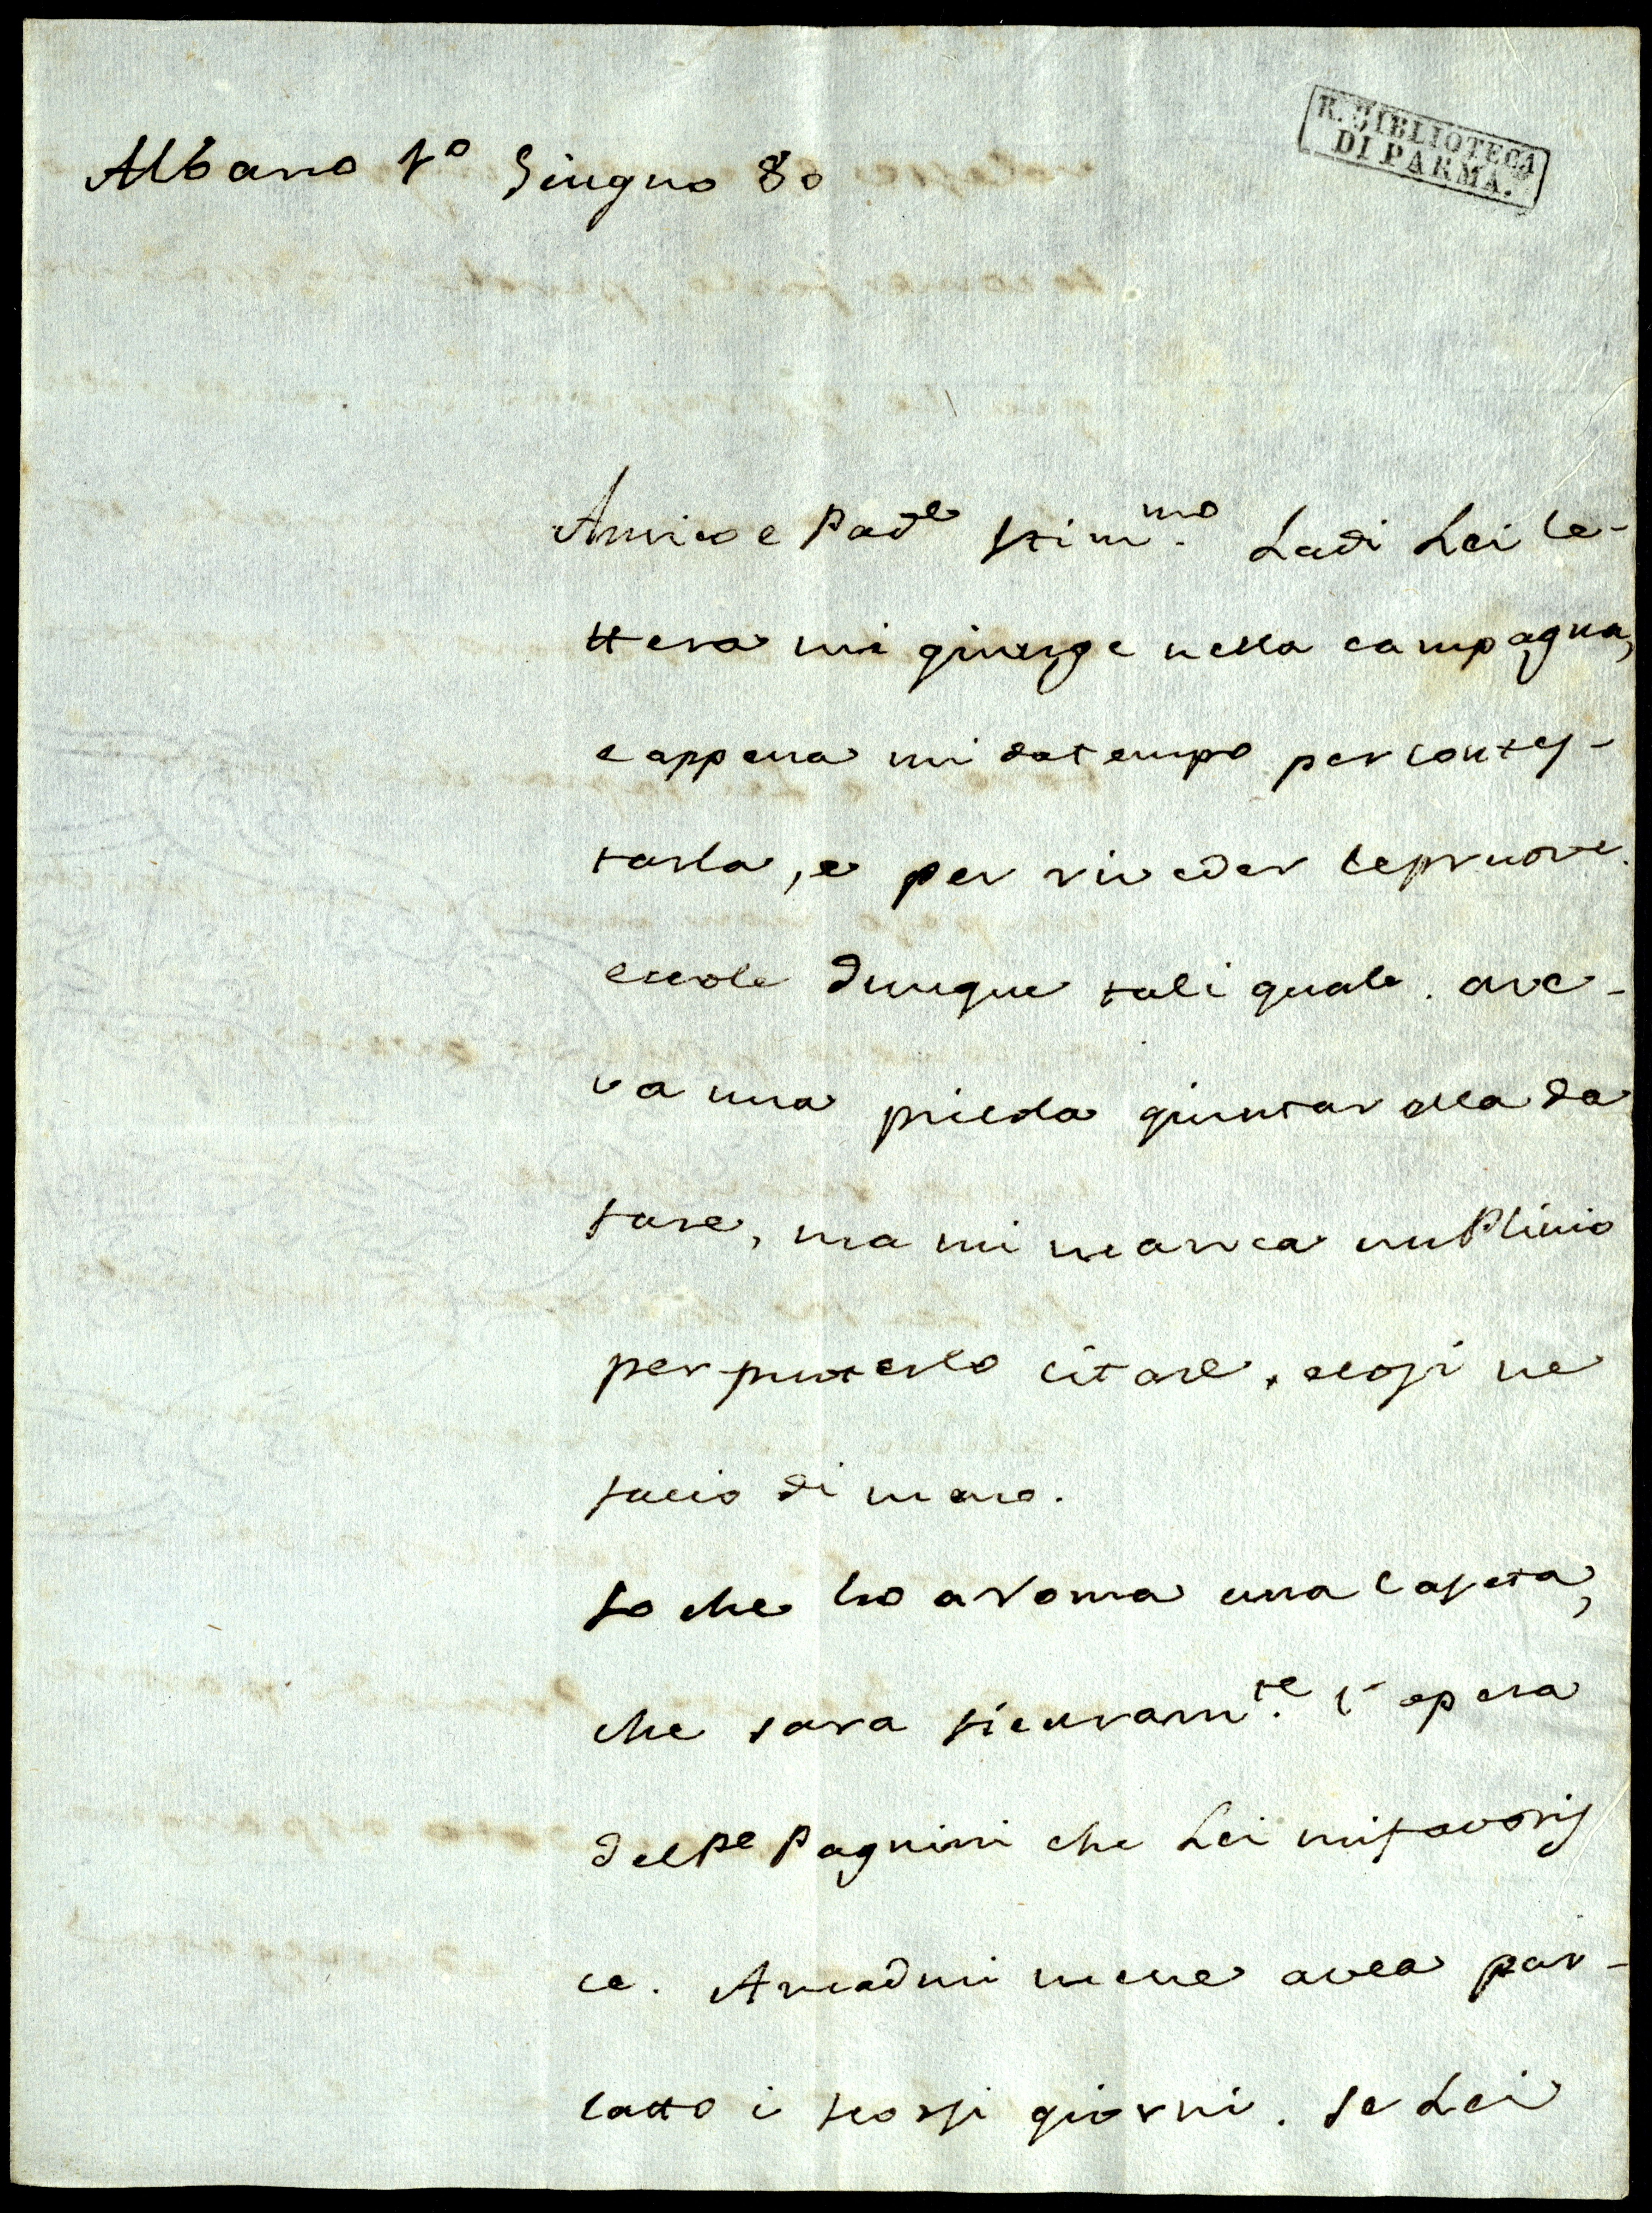 R. BIBLIOTECA
DI PARMA.
Albano 1º Giugno 80
Amico e Padᵉ stimᵐᵒ. La di Lei le-
ttera mi giunge nella campagna,
e appena mi da tempo per contes-
tarla, e per riveder le pruove.
eccole dunque tali quale. ave-
va una picola giuntarella da
fare, ma mi manca un Plinio
per puoterlo citare. e cosi ne
facio di meno.
So che ho a Roma una caseta,
che sara sicuramᵗᵉ. l'opera
del Pᵉ Pagnini che Lei mi favoris
ce. Arcadmi mene avea par-
latto i scorsi giorni. Se Lei